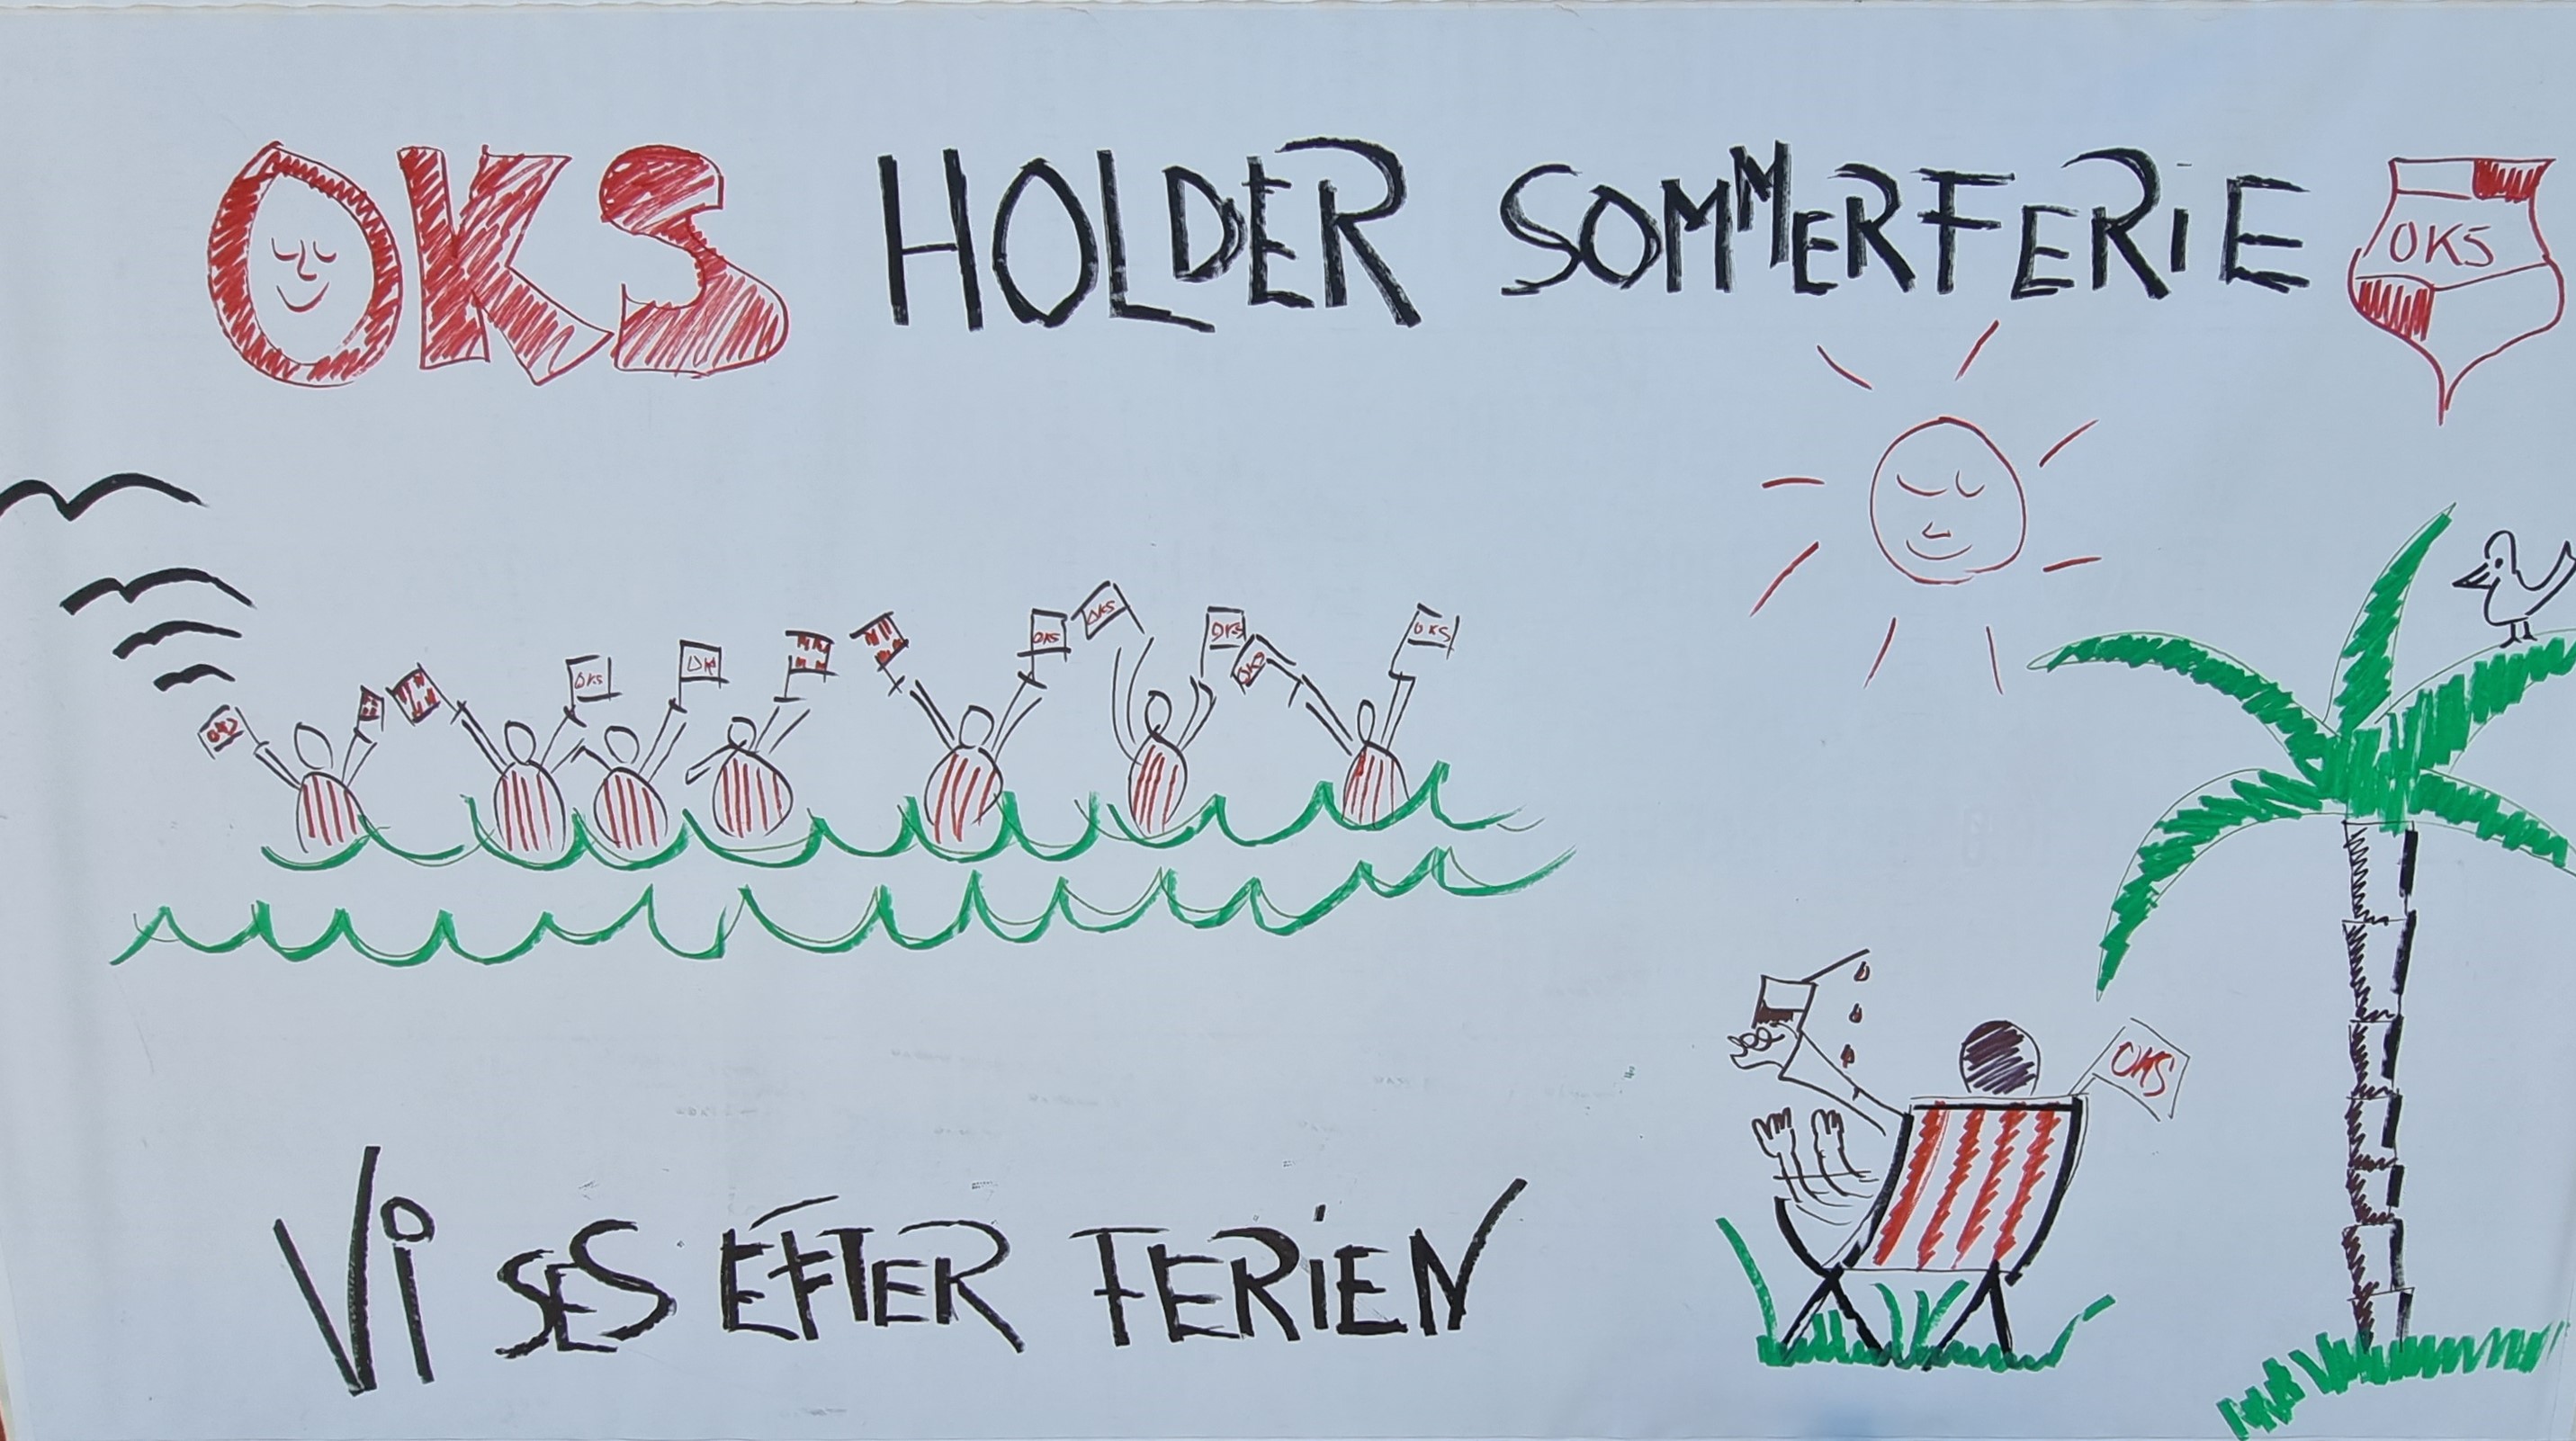 OKS HOLDER SOMMERFERIE
OKS
OKS
OKS
OK
OKS
OKS
OKS
OKS
OKS
OKS
OKS
Vi SES EFTER FERIEN